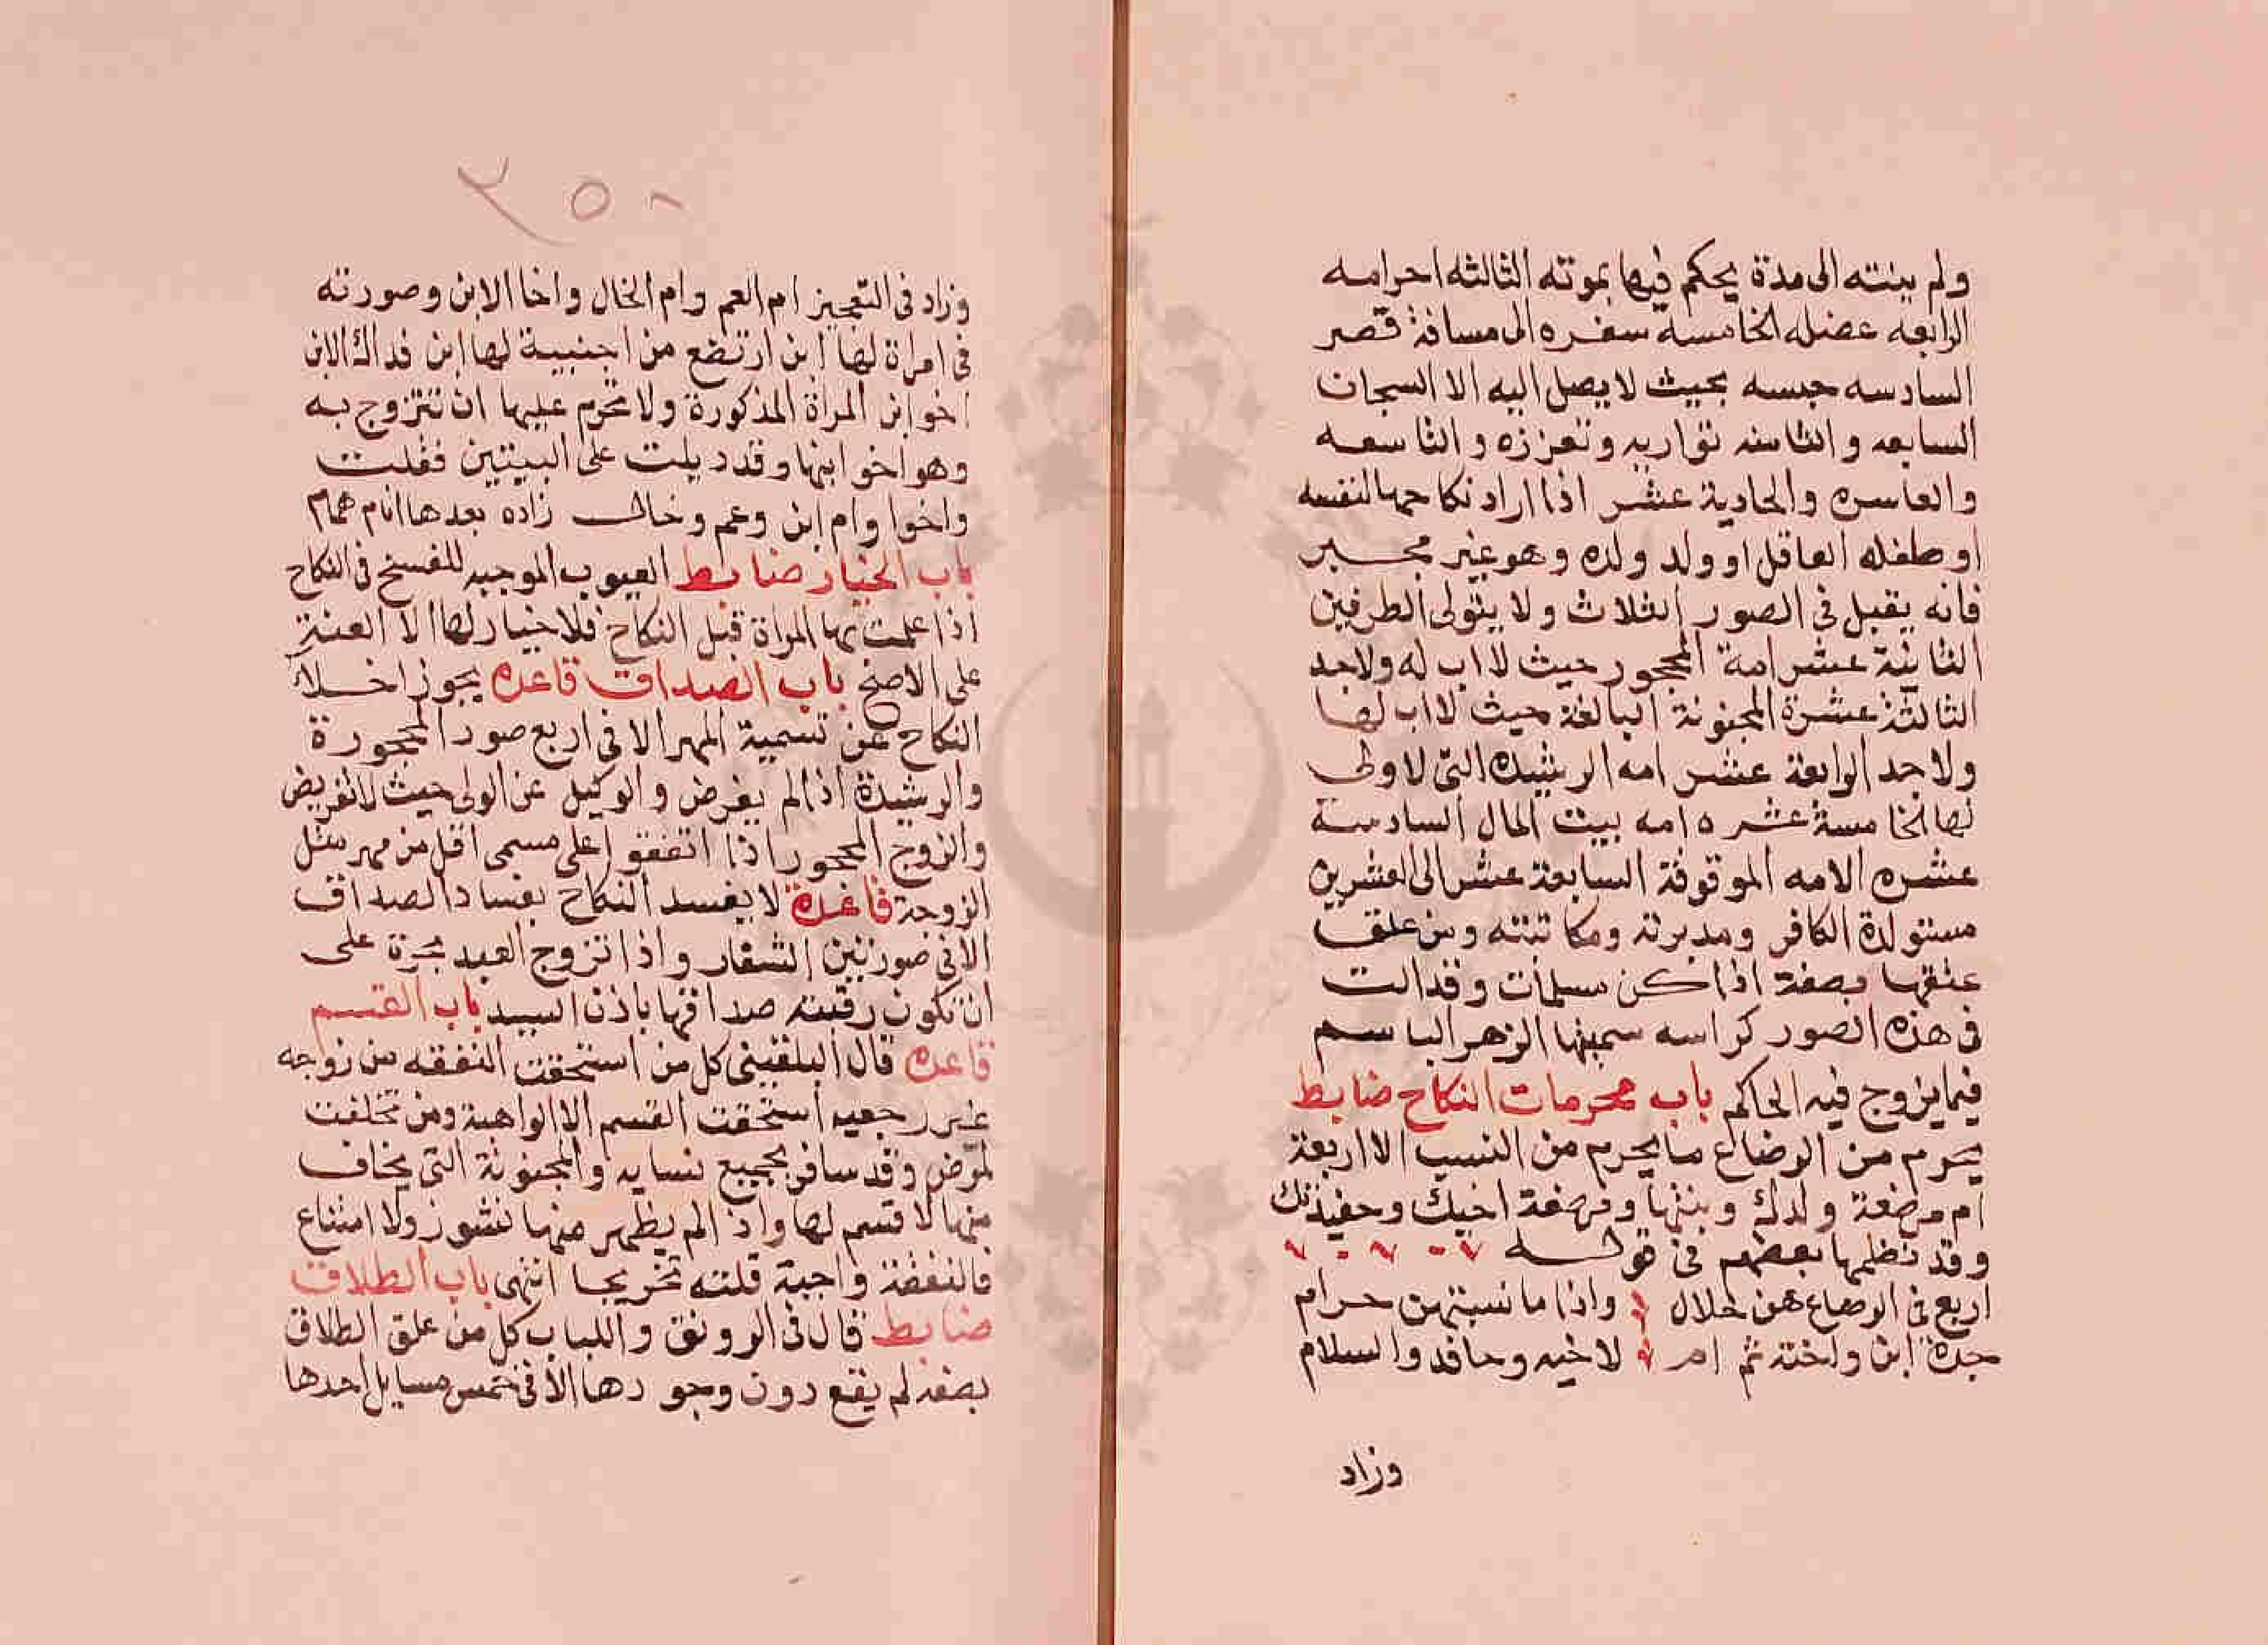 ولم ينته الى مدة يحكم فيها بموته الثالثه احرامه
الرابعه عضله الخامسة سفره الى مسافة قصر
السادسه حبسه بحيث لا يصل اليه الا السجان
السابعه والثامنه تواريه وتعززه والتاسعه
والعاسره والحادية عشر اذا اراد نكاحها لنفسه
او طفله العاقل او ولد ولده وهو غير مجبر
فانه يقبل فى الصور الثلاث ولا يتولى الطرفين
الثانية عشر امة المحجور حيث لا اب له ولا جد
الثالثة عشرة المجنونة البالغة حيث لا اب لها
ولا جد الرابعة عشر امه الرشيده التى لا ولى
لها الخامسة عشره امه بيت المال السادسة
عشره الامه الموقوفة السابعة عشر الى العشرين
مستولدة الكافر ومدبرته ومكاتبته ومن علق
عتقها بصفة اذا كن مسلمات وقد الفت
فى هذه الصور كراسه سميتها الزهر الباسم
فيما يزوج فيه الحاكم باب محرمات النكاح ضابط
يحرم من الرضاع ما يحرم من النسب الا اربعة
ام مرضعة ولدك وبنتها ومرضعة اخيك وحفيدتك
وقد نظمها بعضهم فى قوله
اربع فى الرضاع هن حلال واذا ما نسبتهن حرام
جدة ابن واخته ثم ام لاخيه وحافد والسلام
وزاد
٣٥٠
وزاد فى التعجيز ام العم وام الخال واخا الابن وصورته
فى امراة لها ابن ارتضع من اجنبية لها ابن فذاك الابن
اخو ابن المراة المذكورة ولا يحرم عليها ان تتزوج به
وهو اخو ابنها وقد ديلت على البيتين فقلت
واخوا وام ابن وعم وخال زاده بعدها امام همام
باب الخيار ضابط العيوب الموجبه للفسخ فى النكاح
اذا علمت بها المراة قبل النكاح فلا خيار لها الا العنة
على الاصح باب الصداق قاعده يجوز اخلاء
النكاح عن تسمية المهر الا فى اربع صور المحجورة
والرشيدة اذا لم يفرض والوكيل عن الولى حيث لا تفويض
والزوج المحجور اذا اتفقوا على مسمى اقل من مهر مثل
الزوجة قاعدة لا يفسد النكاح بفساد الصداق
الا فى صورتين الشغار واذا تزوج العبد بحرة على
ان تكون رقبته صداقها باذن السيد باب القسم
قاعده قال البلقينى كل من استحقت النفقه من زوجه
غير رجعيه استحقت القسم الا الواهبة ومن تخلفت
لمرض وقد سافر بجميع نسايه والمجنونة التى يخاف
منها لا قسم لها واذا لم يظهر منها نشوز ولا امتناع
فالنفقة واجبة قلته تخريجا انتهى باب الطلاق
ضابط قال فى الرونق واللباب كل من علق الطلاق
بصفه لم يقع دون وجودها الا فى خمس مسايل احدها